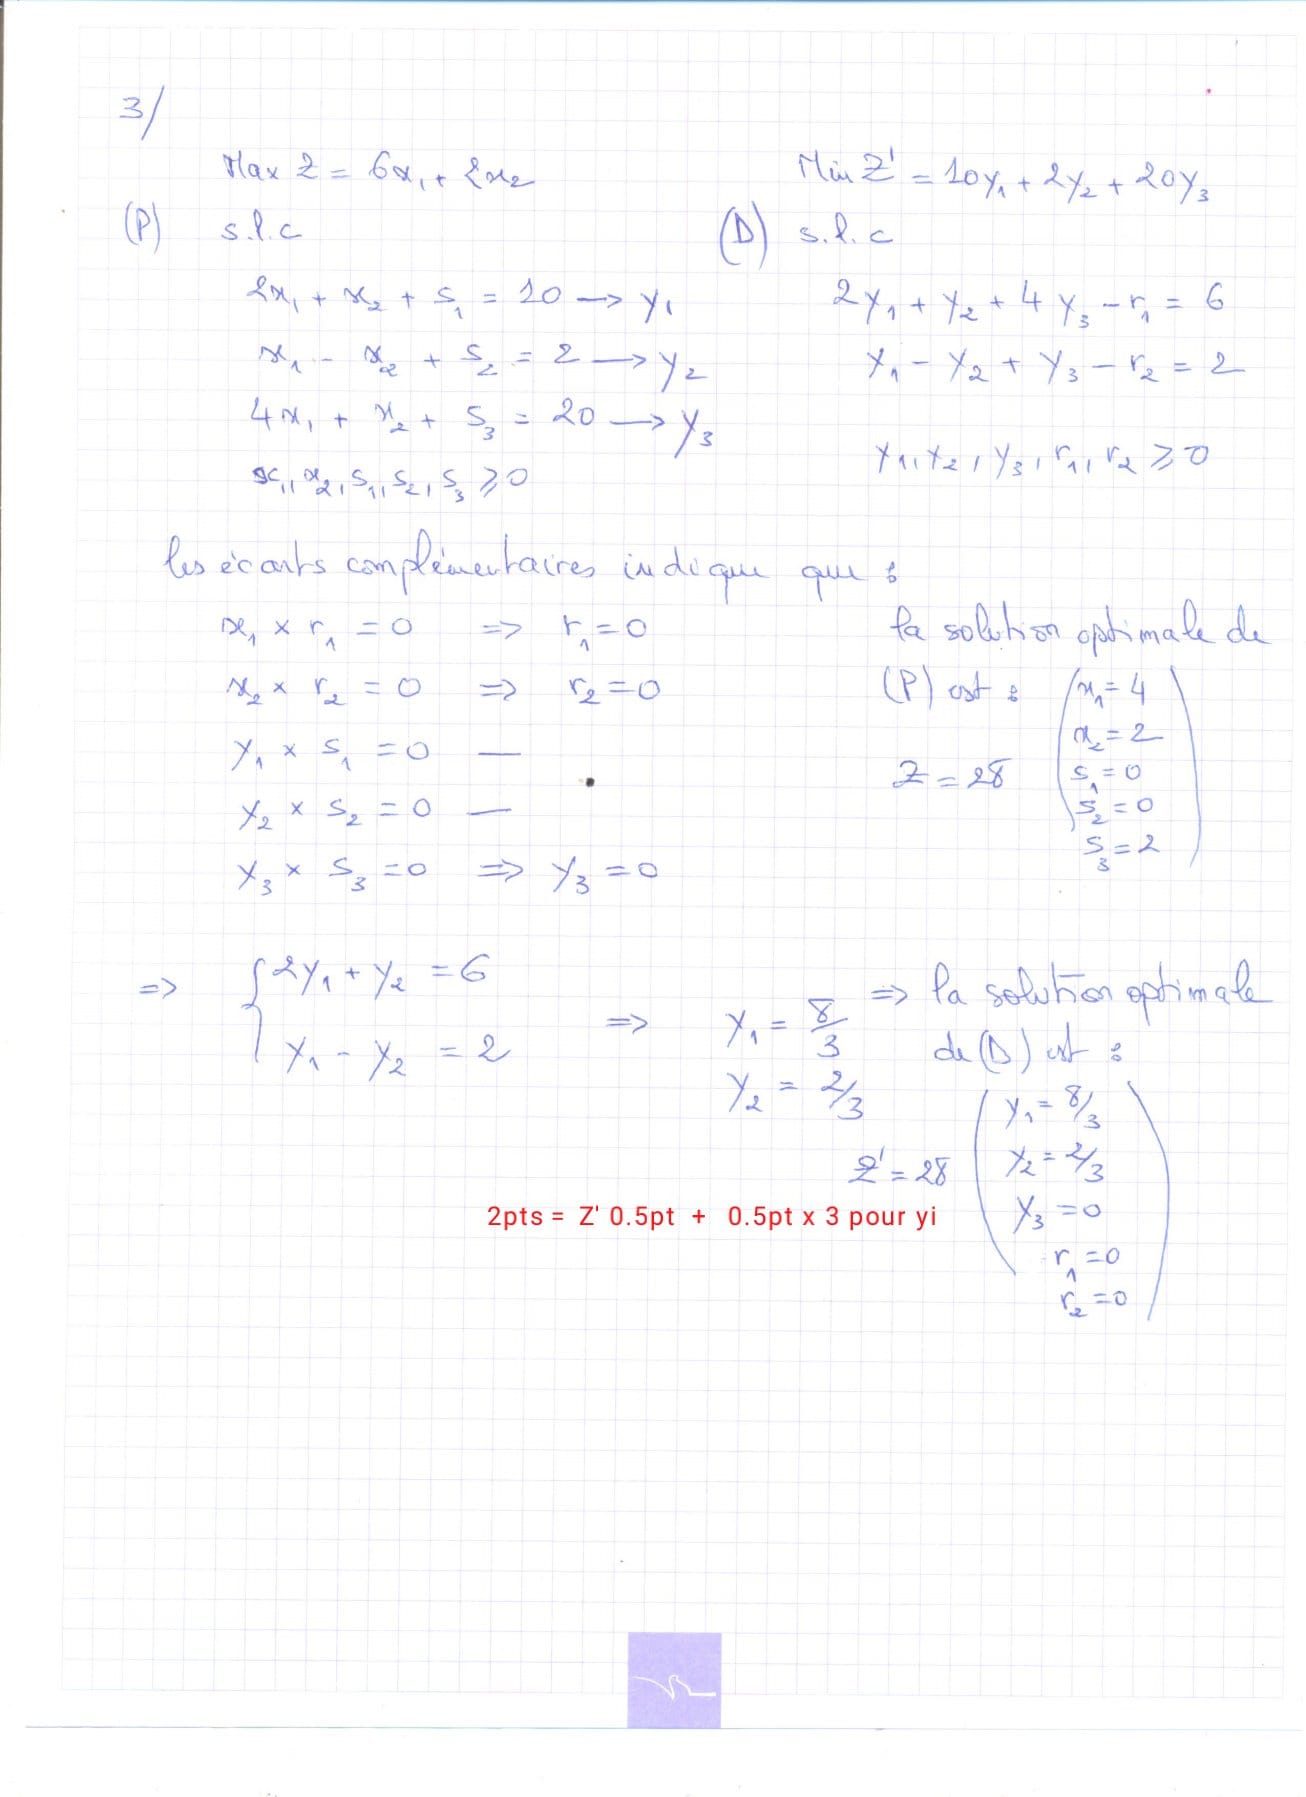 3/
Max Z = 6x₁ + 2x₂
(P) s.l.c
2x₁ + x₂ + s₁ = 10 → y₁
x₁ - x₂ + s₂ = 2 → y₂
4x₁ + x₂ + s₃ = 20 → y₃
x₁, x₂, s₁, s₂, s₃ ⩾ 0
Min Z' = 10y₁ + 2y₂ + 20y₃
(D) s.l.c
2y₁ + y₂ + 4y₃ - r₁ = 6
y₁ - y₂ + y₃ - r₂ = 2
y₁, y₂, y₃, r₁, r₂ ⩾ 0
les écarts complémentaires indique que :
x₁ × r₁ = 0 => r₁ = 0
x₂ × r₂ = 0 => r₂ = 0
y₁ × s₁ = 0 —
y₂ × s₂ = 0 —
y₃ × s₃ = 0 => y₃ = 0
la solution optimale de
(P) est :
x₁ = 4
x₂ = 2
s₁ = 0
s₂ = 0
s₃ = 2
Z = 28
=> { 2y₁ + y₂ = 6
y₁ - y₂ = 2
=> y₁ = 8/3
y₂ = 2/3
=> la solution optimale
de (D) est :
y₁ = 8/3
y₂ = 2/3
y₃ = 0
r₁ = 0
r₂ = 0
Z' = 28
2pts = Z' 0.5pt + 0.5pt x 3 pour yi